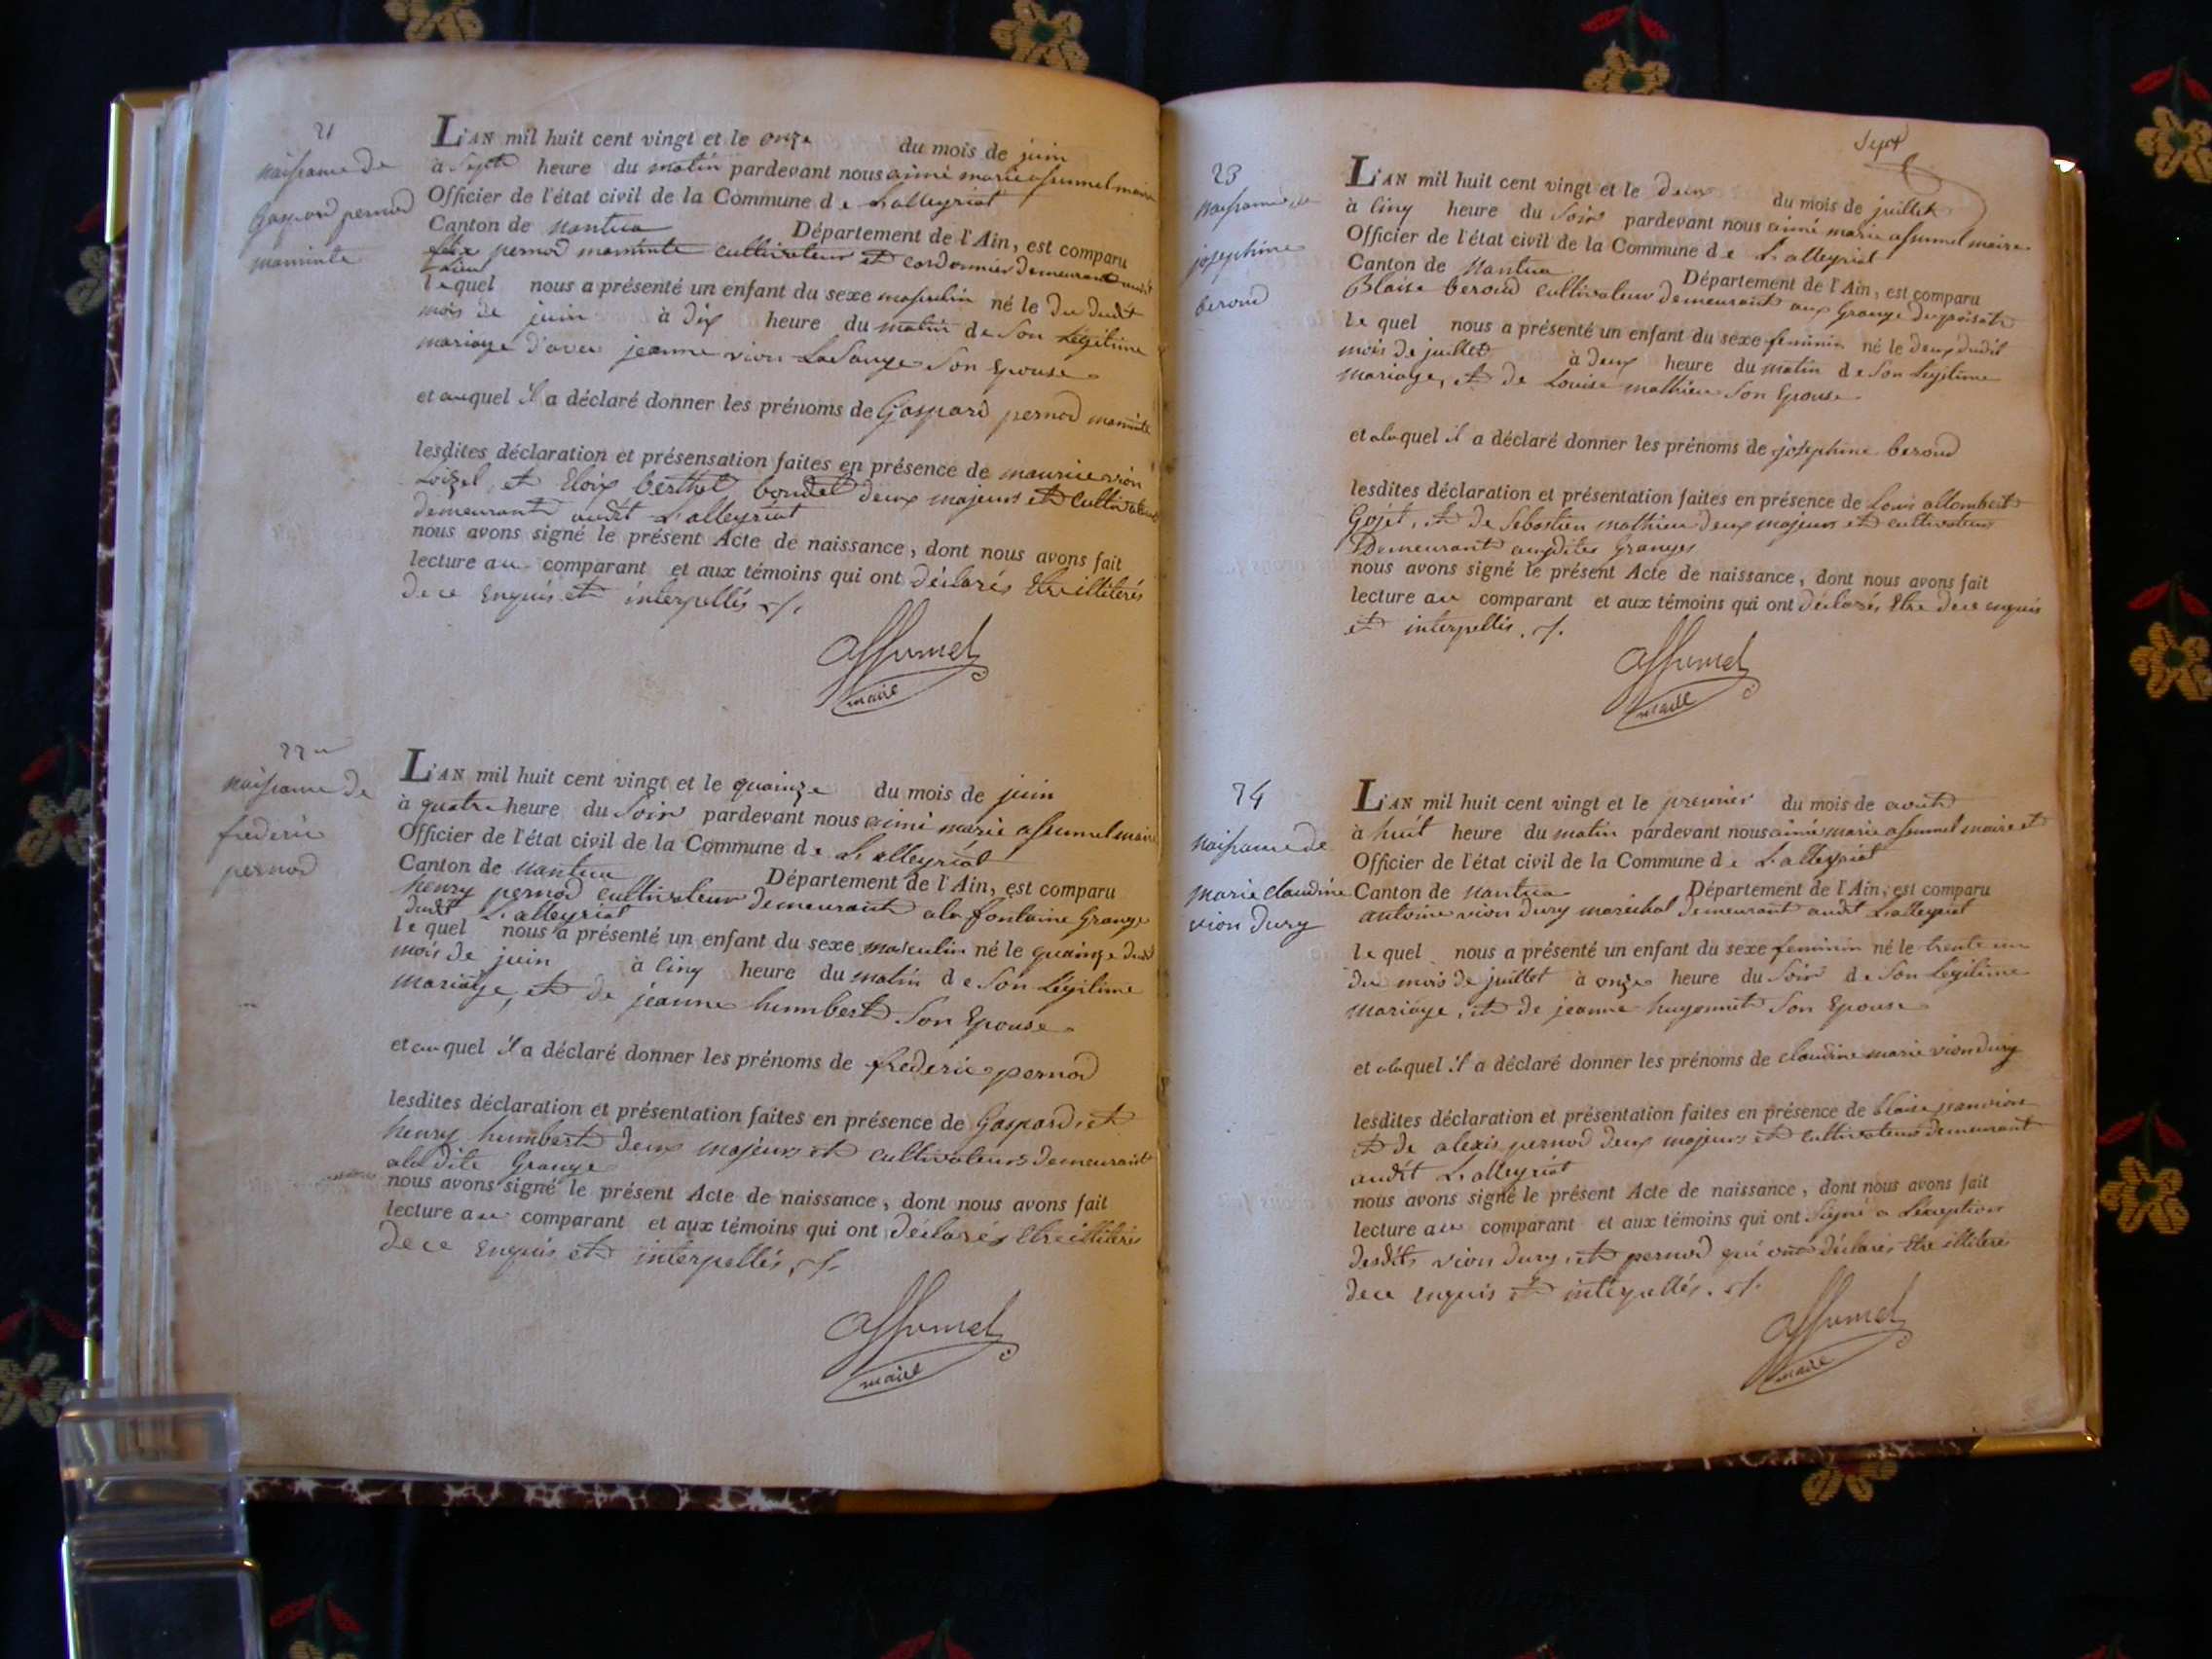 21
naissance de
Gaspard pernod
maminte
L'AN mil huit cent vingt et le onze du mois de juin
à Sept heure du matin pardevant nous aimé marie assumel maire
Officier de l'état civil de la Commune de Lalleyriat
Canton de Nantua Département de l'Ain, est comparu
pernod maminte cultivateur et cordonnier demeurant audit
lieu
lequel nous a présenté un enfant du sexe masculin né le dix dudit
mois de juin à dix heure du matin de Son Légitime
mariage d'avec jeanne vion Son Epouse
et auquel il a déclaré donner les prénoms de Gaspard pernod maminte
lesdites déclaration et présensation faites en présence de maurice vion
Loizel, et Eloix berthet deux majeurs et cultivateurs
demeurant audit Lalleyriat
nous avons signé le présent Acte de naissance, dont nous avons fait
lecture au comparant et aux témoins qui ont déclarés Etre illiterés
de ce Enquis et interpellés ./.
assumel
maire
22
naissance de
frederic
pernod
L'AN mil huit cent vingt et le quainze du mois de juin
à quatre heure du Soir pardevant nous aimé marie assumel maire
Officier de l'état civil de la Commune de Lalleyriat
Canton de Nantua Département de l'Ain, est comparu
henry pernod cultivateur demeurant a la fontaine Grange
dudit Lalleyriat
lequel nous a présenté un enfant du sexe masculin né le quainze dudit
mois de juin à Cinq heure du matin de Son Légitime
mariage, et de jeanne humbert Son Epouse
et auquel il a déclaré donner les prénoms de frederic pernod
lesdites déclaration et présentation faites en présence de Gaspard, et
henry humbert deux majeurs et cultivateurs demeurant
a la dite Grange
nous avons signé le présent Acte de naissance, dont nous avons fait
lecture au comparant et aux témoins qui ont déclarés Etre illiterés
de ce Enquis et interpellés ./.
assumel
maire
Sept
23
naissance de
josephine
beroud
L'AN mil huit cent vingt et le deux du mois de juillet
à Cinq heure du Soir pardevant nous aimé marie assumel maire
Officier de l'état civil de la Commune de Lalleyriat
Canton de Nantua Département de l'Ain, est comparu
Blaise beroud cultivateur demeurant aux Grange
le quel nous a présenté un enfant du sexe feminin né le deux dudit
mois de juillet à deux heure du matin de Son Legitime
mariage, et de Louise mathieu Son Epouse
et alaquel il a déclaré donner les prénoms de josephine beroud
lesdites déclaration et présentation faites en présence de Louis allombert
Gojet, et de Sebastien mathieu deux majeurs et cultivateurs
Demeurant auxdites Granges
nous avons signé le présent Acte de naissance, dont nous avons fait
lecture au comparant et aux témoins qui ont déclarés Etre de ce enquis
et interpellés ./.
assumel
maire
24
naissance de
marie claudine
vion dury
L'AN mil huit cent vingt et le premier du mois de aout
à huit heure du matin pardevant nous aimé marie assumel maire et
Officier de l'état civil de la Commune de Lalleyriat
Canton de Nantua Département de l'Ain, est comparu
antoine vion dury maréchal demeurant audit Lalleyriat
le quel nous a présenté un enfant du sexe feminin né le trente un
du mois de juillet à onze heure du Soir de Son Legitime
mariage, et de jeanne hugonnet Son Epouse
et alaquel il a déclaré donner les prénoms de claudine marie vion dury
lesdites déclaration et présentation faites en présence de blaise
et de alexis pernod deux majeurs et cultivateurs demeurant
audit Lalleyriat
nous avons signé le présent Acte de naissance, dont nous avons fait
lecture au comparant et aux témoins qui ont signé a Lexception
desdits vion dury, et pernod qui ont déclarés Etre illiteré
de ce enquis et interpellés ./.
assumel
maire